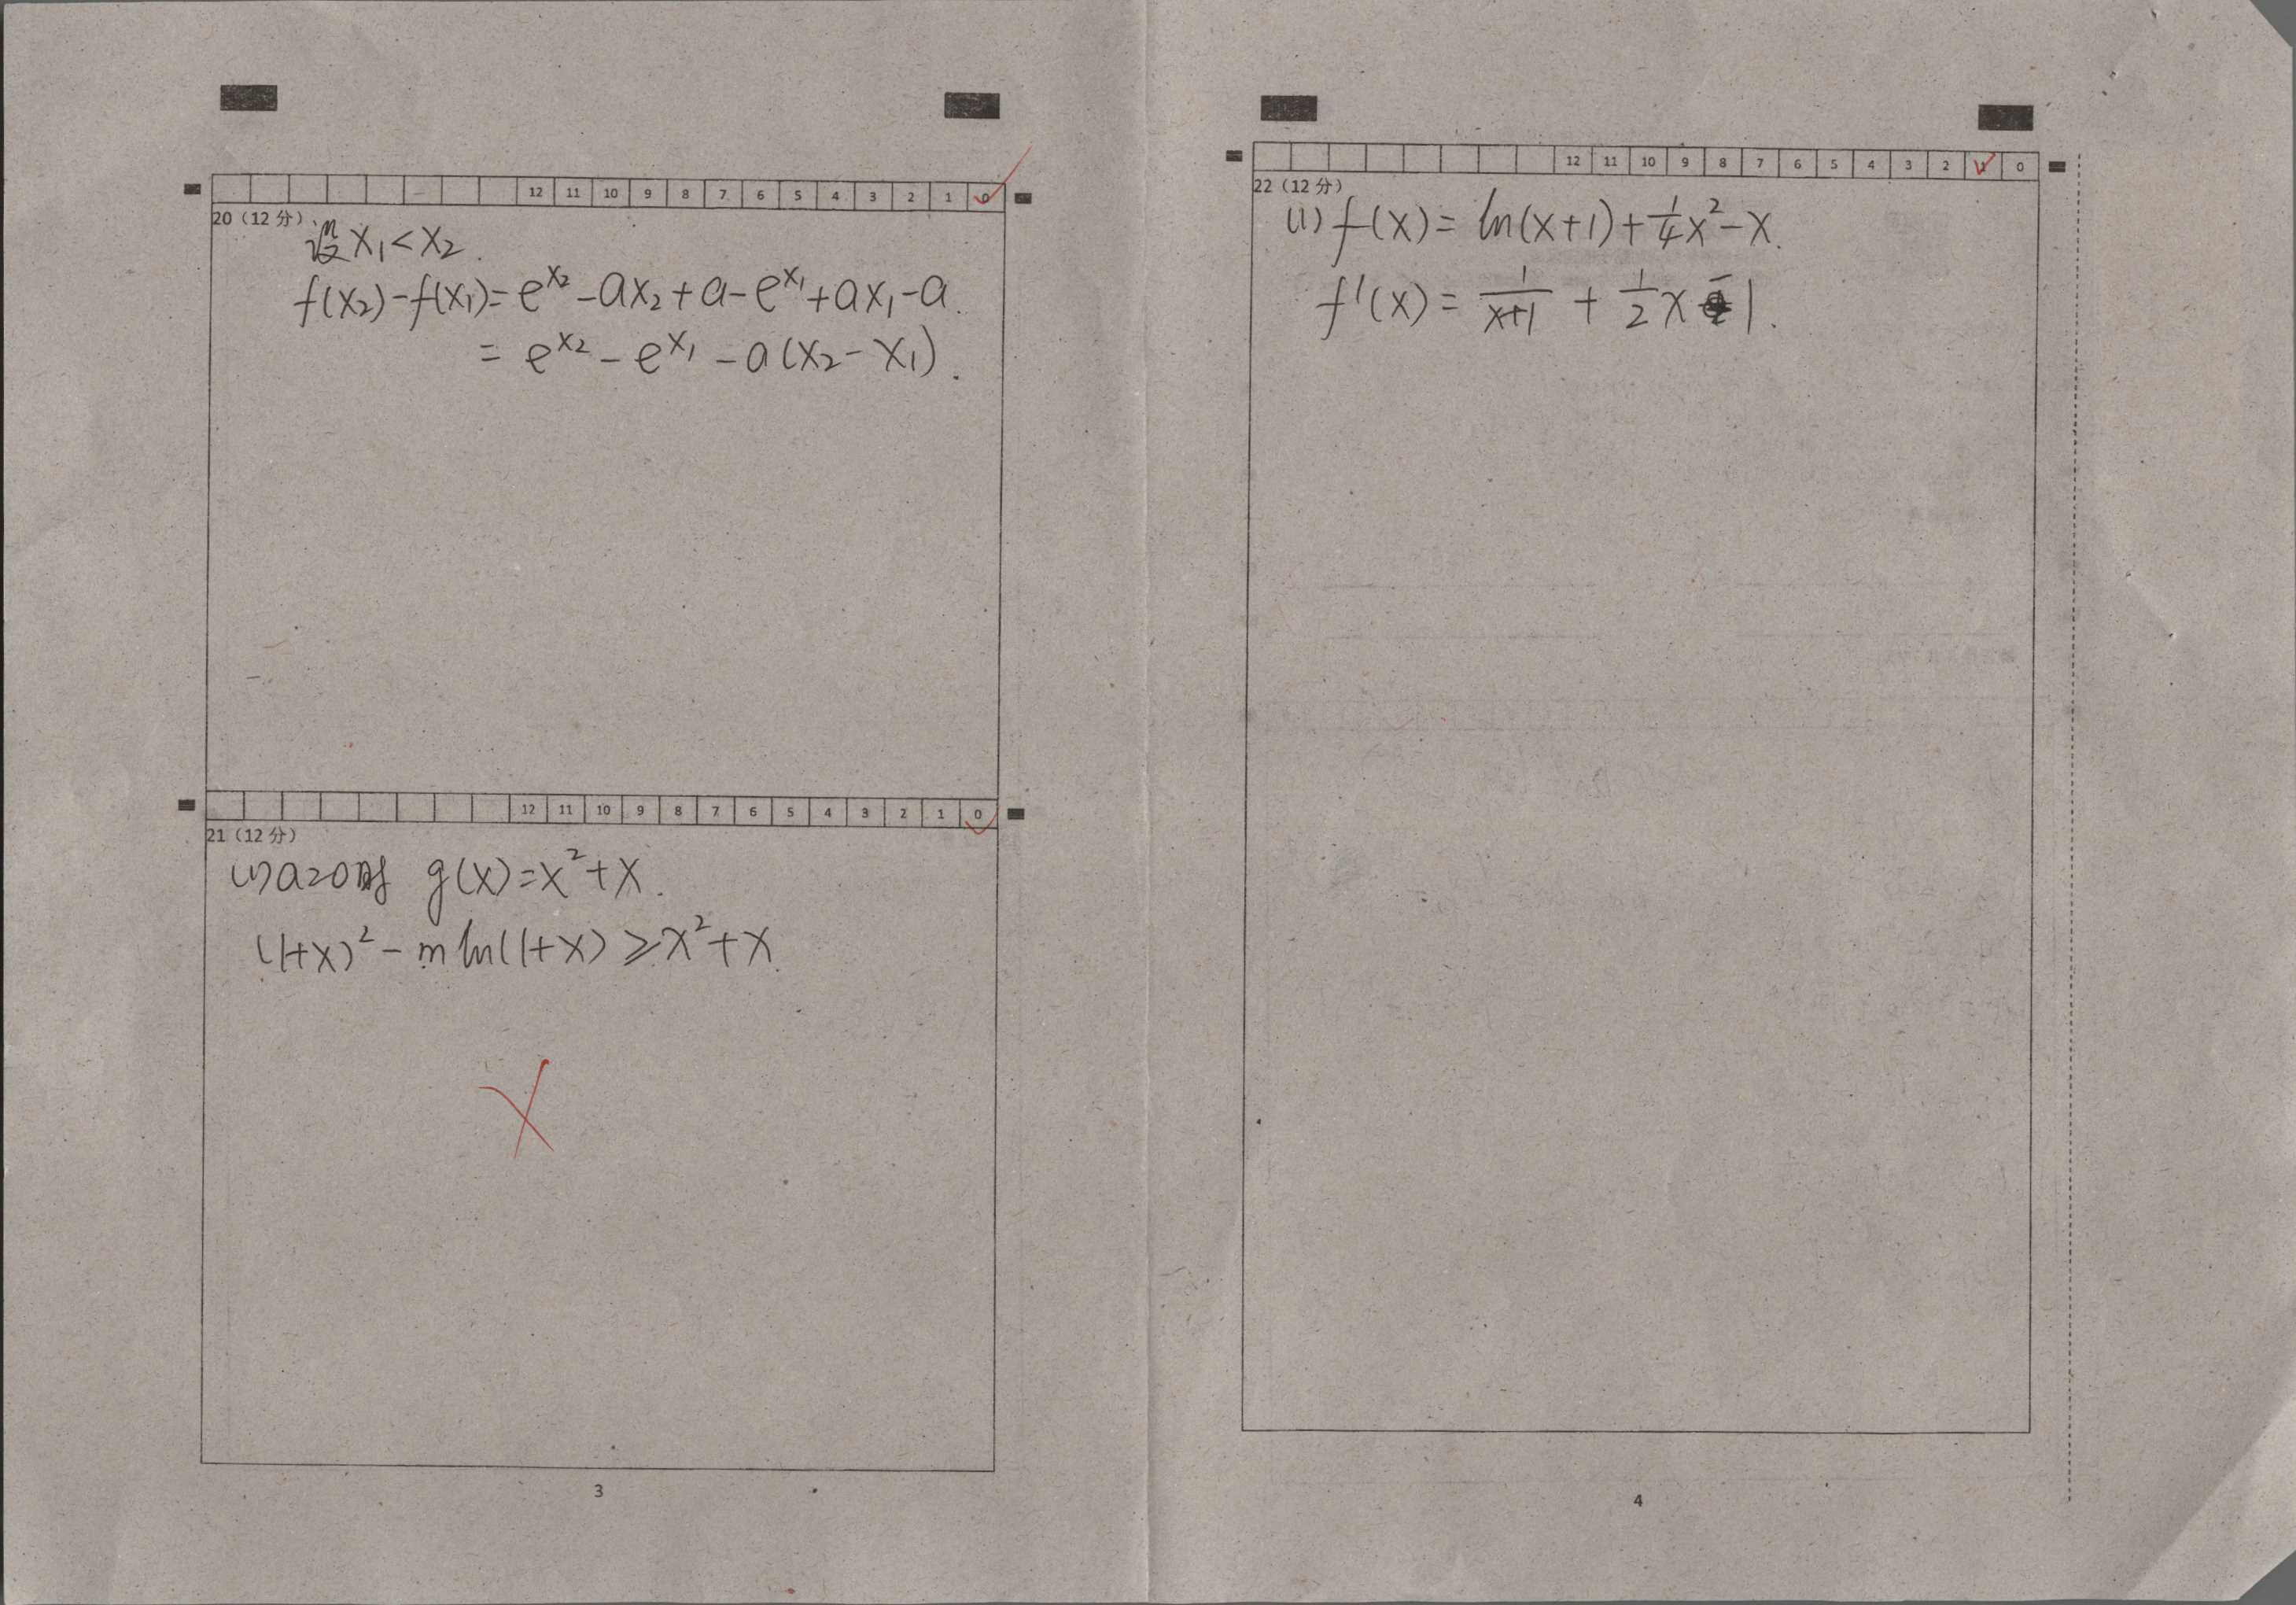 12 11 10 9 8 7 6 5 4 3 2 1 0
20（12 分）
设 x₁<x₂.
f(x₂)-f(x₁)=e^{x₂}-ax₂+a-e^{x₁}+ax₁-a.
=e^{x₂}-e^{x₁}-a(x₂-x₁).
12 11 10 9 8 7 6 5 4 3 2 1 0
21（12 分）
(1)a=0时 g(x)=x²+x.
(1+x)²-mln(1+x)≥x²+x.
3
12 11 10 9 8 7 6 5 4 3 2 1 0
22（12 分）
(1) f(x)=ln(x+1)+\frac{1}{4}x²-x.
f'(x)=\frac{1}{x+1}+\frac{1}{2}x-1.
4